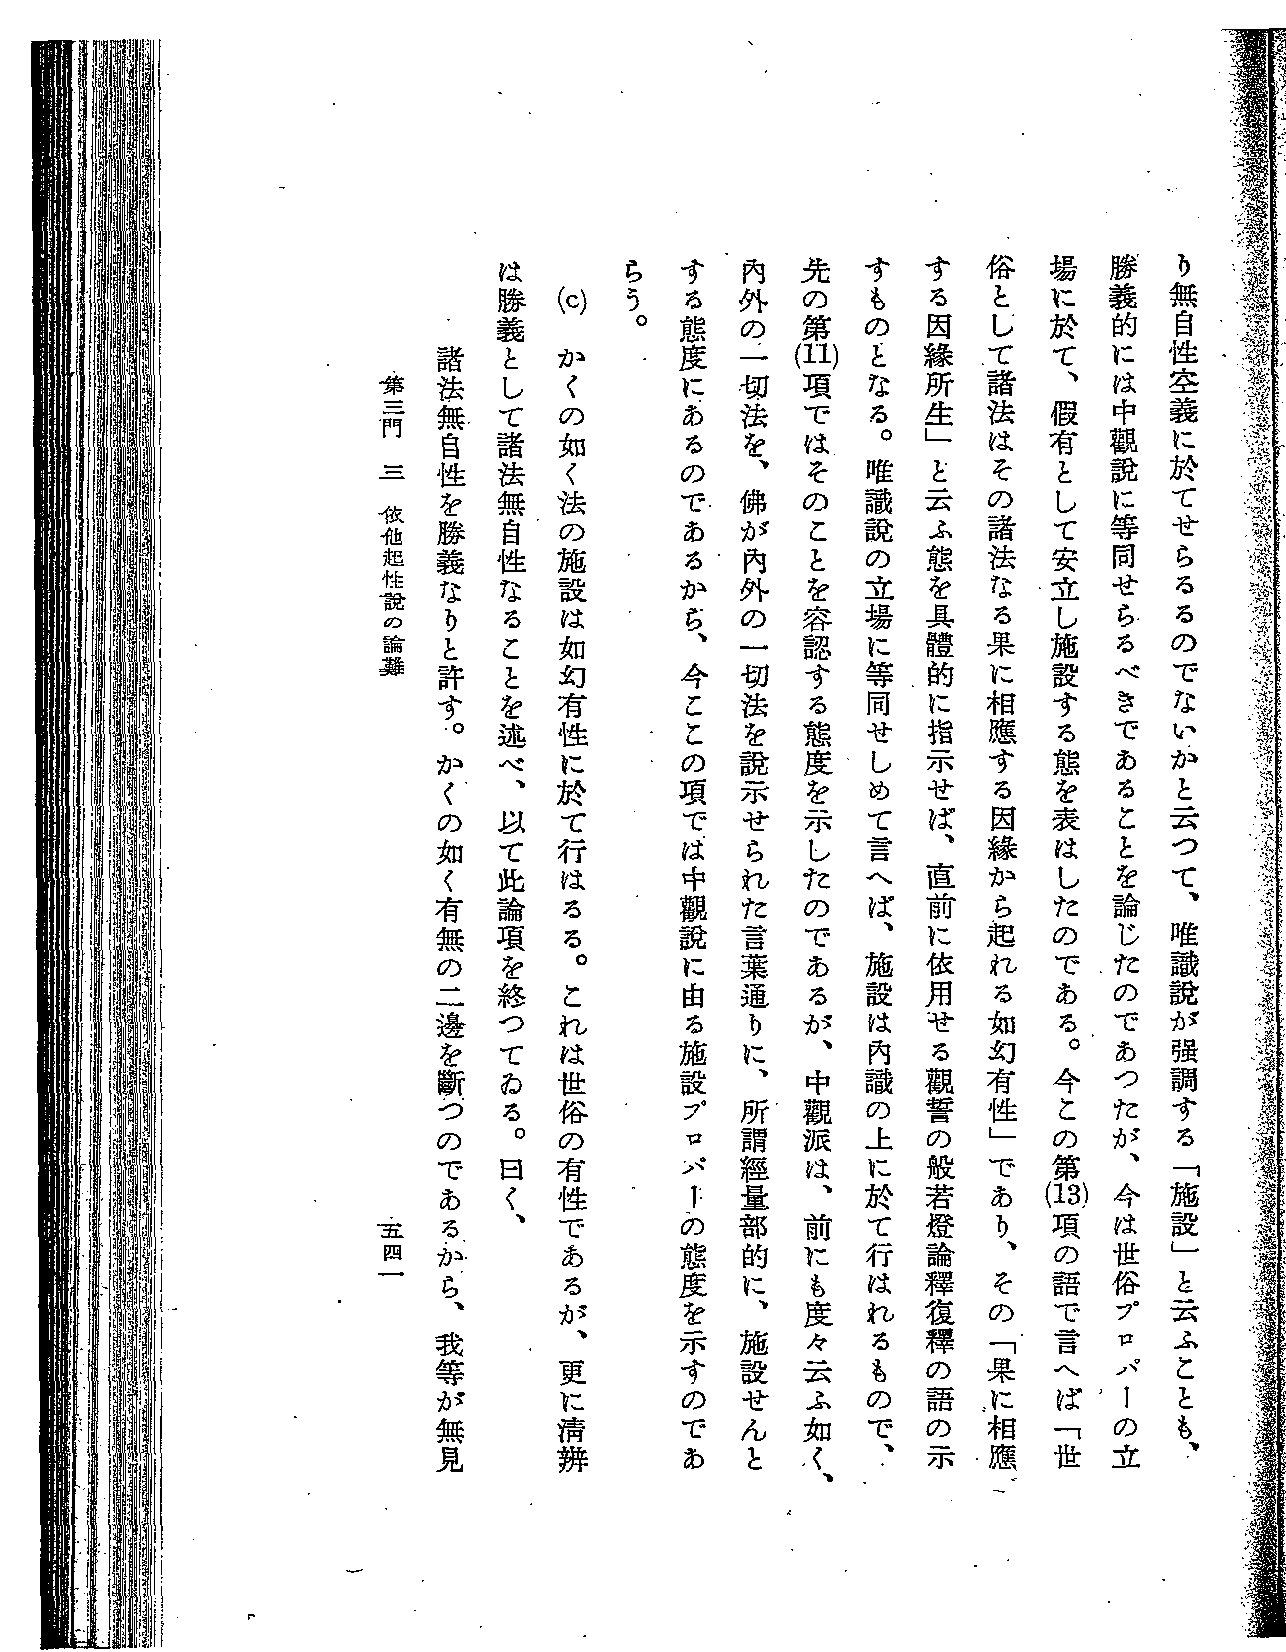 り無自性空義に於てせらるるのでないかと云つて、唯識說が强調する「施設」と云ふことも、
勝義的には中觀說に等同せらるべきであることを論じたのであつたが、今は世俗プロパーの立
場に於て、假有として安立し施設する態を表はしたのである。今この第(13)項の語で言へば「世
俗として諸法はその諸法なる果に相應する因緣から起れる如幻有性」であり、その「果に相應
する因緣所生」と云ふ態を具體的に指示せば、直前に依用せる觀誓の般若燈論釋復釋の語の示
すものとなる。唯識說の立場に等同せしめて言へば、施設は內識の上に於て行はれるもので、
先の第(11)項ではそのことを容認する態度を示したのであるが、中觀派は、前にも度々云ふ如く、
內外の一切法を、佛が內外の一切法を說示せられた言葉通りに、所謂經量部的に、施設せんと
する態度にあるのであるから、今ここの項では中觀說に由る施設プロパーの態度を示すのであ
らう。
(c) かくの如く法の施設は如幻有性に於て行はるる。これは世俗の有性であるが、更に淸辨
は勝義として諸法無自性なることを述べ、以て此論項を終つてゐる。曰く、
諸法無自性を勝義なりと許す。かくの如く有無の二邊を斷つのであるから、我等が無見
第三門 三 依他起性說の論難
五四一